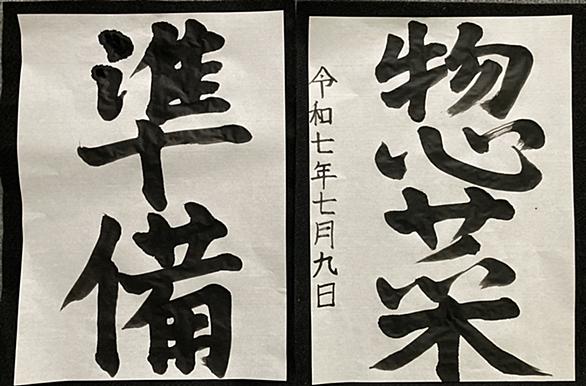 惣菜
令和七年七月九日
準備